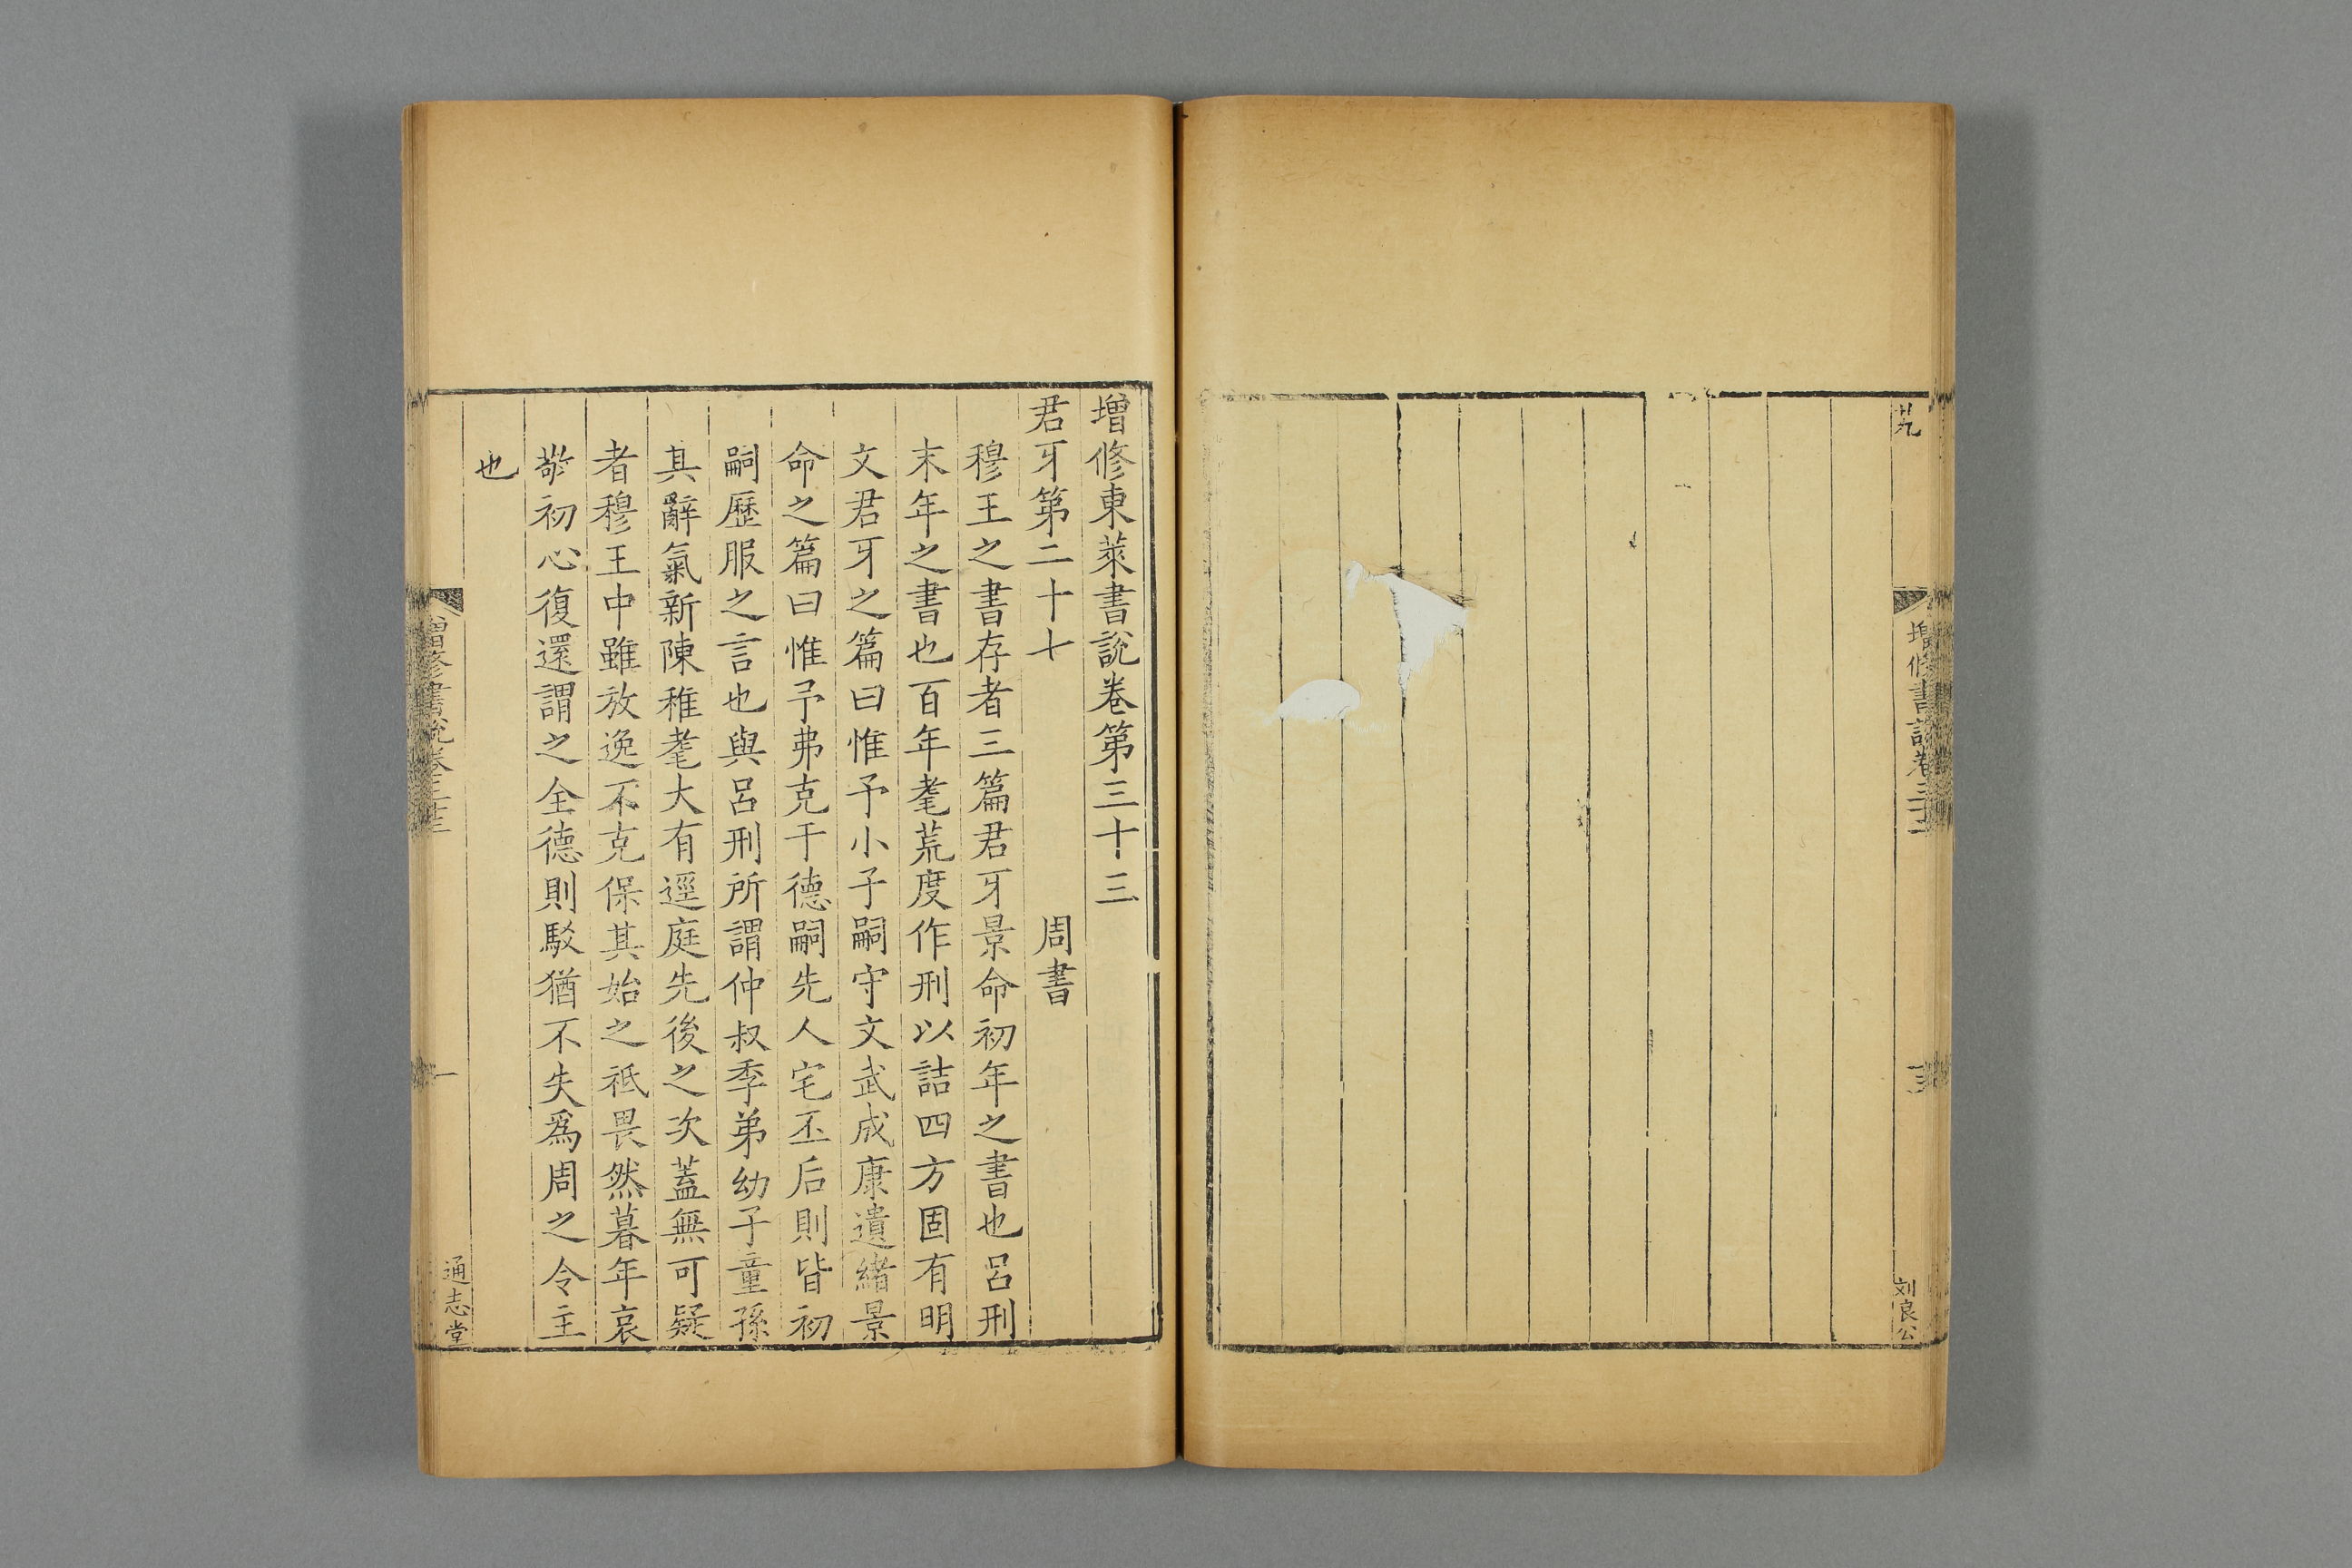 增修東萊書說卷第三十三
君牙第二十七　周書
穆王之書存者三篇君牙景命初年之書也呂刑
末年之書也百年耄荒度作刑以詰四方固有明
文君牙之篇曰惟予小子嗣守文武成康遺緒景
命之篇曰惟予弗克于德嗣先人宅丕后則皆初
嗣歷服之言也與呂刑所謂仲叔季弟幼子童孫
其辭氣新陳稚耄大有逕庭先後之次蓋無可疑
者穆王中雖放逸不克保其始之祗畏然暮年哀
敬初心復還謂之全德則駁猶不失爲周之令主
也
增修書說卷三十三
一
通志堂
增修書說卷三十二
刘良公